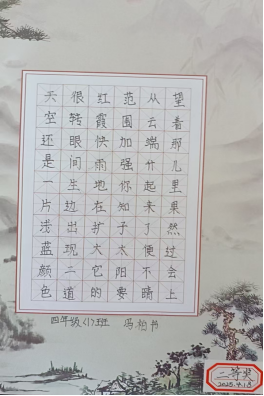 天空还是一片浅蓝颜色
很转眼间生边出现二道
红霞快雨地在扩大它的
范围加强你知子太阳要
从云端什起来了便不睛
望着那儿里果然过会上
四年级(1)班
二等奖
2025.4.18